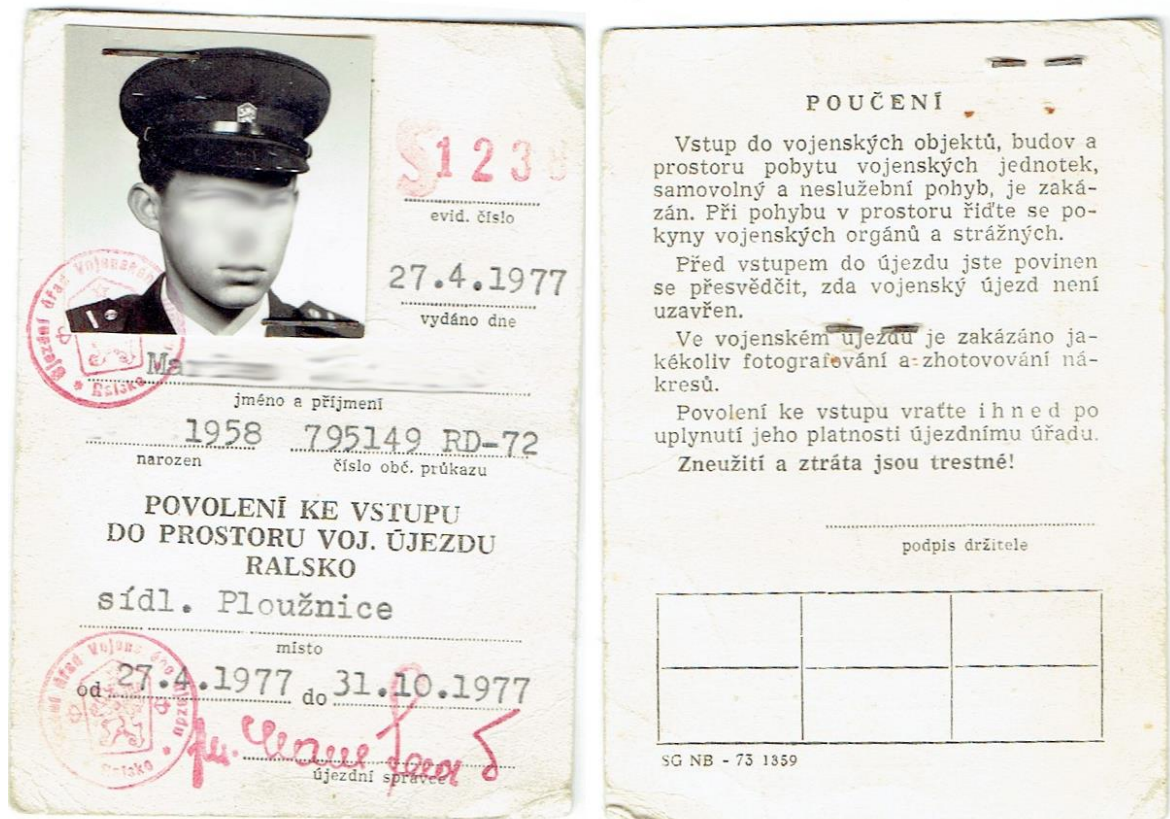 S1238
evid. číslo
27.4.1977
vydáno dne
Újezdní úřad Vojenského
Ralsko
Ma
jméno a příjmení
1958 795149 RD-72
narozen číslo obč. průkazu
POVOLENÍ KE VSTUPU
DO PROSTORU VOJ. ÚJEZDU
RALSKO
sídl. Ploužnice
místo
od 27.4.1977 do 31.10.1977
újezdní správce
Ralsko
POUČENÍ
Vstup do vojenských objektů, budov a
prostoru pobytu vojenských jednotek,
samovolný a neslužební pohyb, je zaká-
zán. Při pohybu v prostoru řiďte se po-
kyny vojenských orgánů a strážných.
Před vstupem do újezdu jste povinen
se přesvědčit, zda vojenský újezd není
uzavřen.
Ve vojenském újezdu je zakázáno ja-
kékoliv fotografování a zhotovování ná-
kresů.
Povolení ke vstupu vraťte ihned po
uplynutí jeho platnosti újezdnímu úřadu.
Zneužití a ztráta jsou trestné!
podpis držitele
SG NB - 73 1359